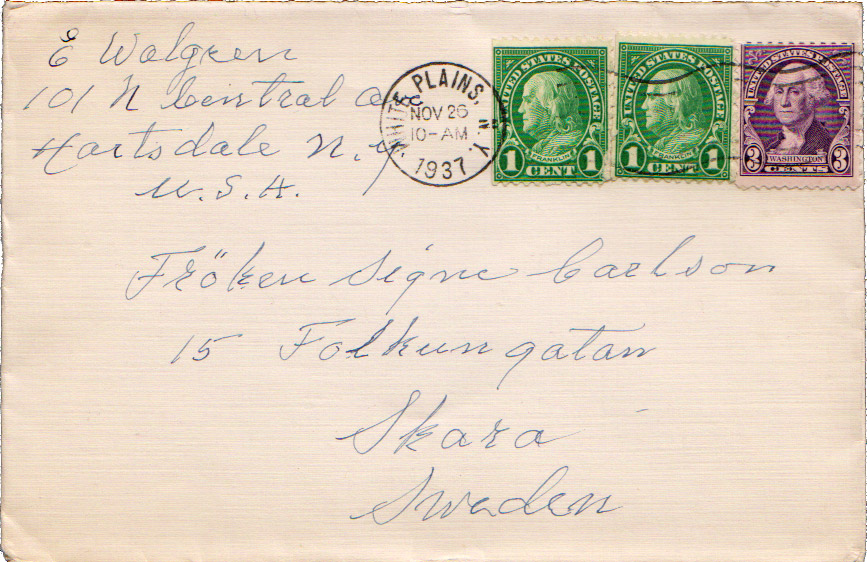 E Walgren
101 N Central Ave
Hartsdale N.Y
U.S.A.
WHITE PLAINS, N.Y.
NOV 26
10-AM
1937
UNITED STATES POSTAGE
FRANKLIN
1 CENT 1
UNITED STATES POSTAGE
FRANKLIN
1 CENT 1
UNITED STATES POSTAGE
WASHINGTON
3 CENTS 3
Fröken Signe Carlson
15 Folkungatan
Skara
Sweden